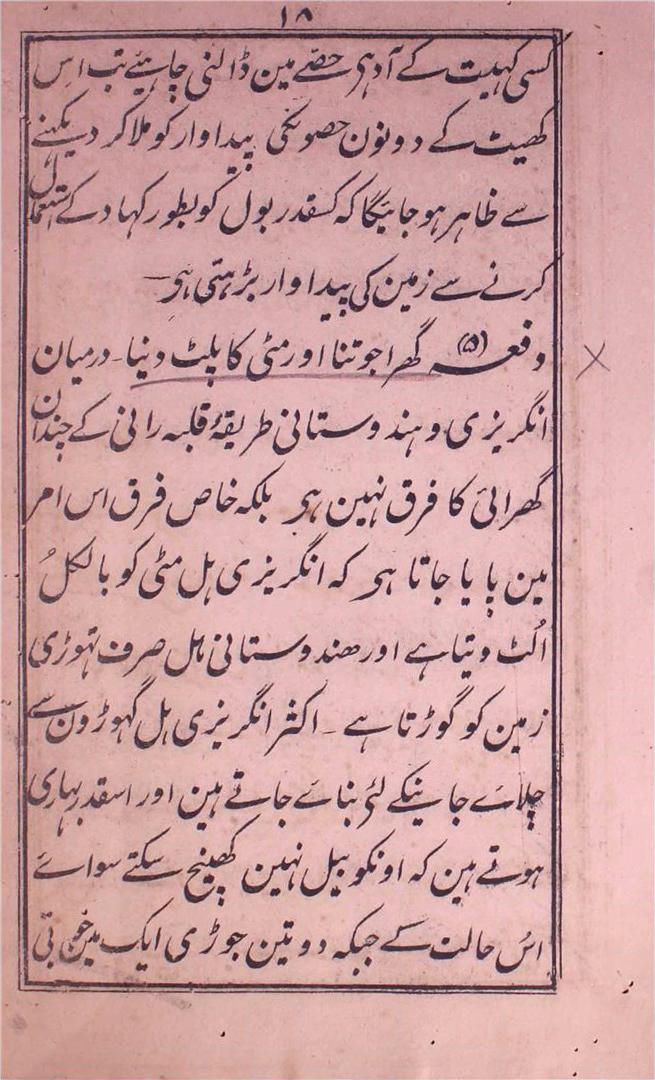 ۱۸
کسی کہیت کے آدہی حصّے مین ڈالنی چاہیئے تب اس
کھیت کے دونون حصونکی پیداوار کو ملا کر دیکہنے
سے ظاہر ہو جائیگا کہ کسقدر بول کو بطور کہاد کے استعمال
کرنے سے زمین کی پیداوار بڑہتی ہی۔
دفعہ (۵) گھرا جوتنا اور مٹی کا پلٹ دینا۔ درمیان
انگریزی و ہندوستانی طریقۂ قلبہ رانی کے چندان
گھرائی کا فرق نہین ہی بلکہ خاص فرق اس امر
مین پایا جاتا ہی کہ انگریزی ہل مٹی کو بالکل
اُلٹ دیتا ہے اور ھندوستانی ہل صرف تہوڑی
زمین کو گوڑتا ہے۔ اکثر انگریزی ہل گہوڑون سے
چلاے جانیکے لئی بناے جاتے ہین اور اسقدر بہاری
ہوتے ہین کہ اونکو بیل نہین کھینچ سکتے سواے
اُس حالت کے جبکہ دو تین جوڑی ایک مین